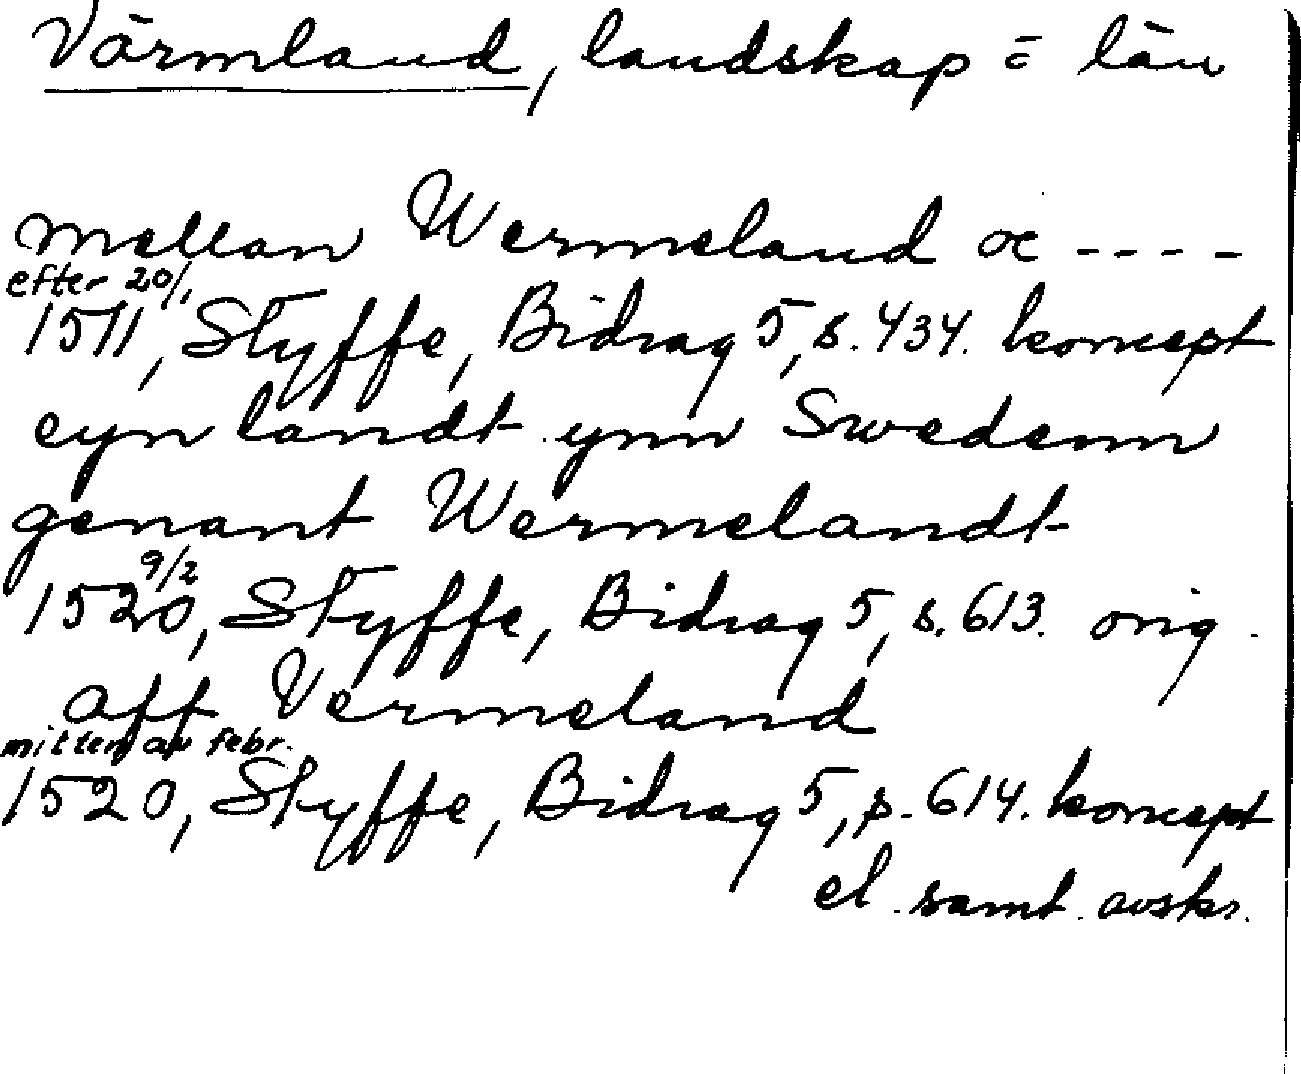 Värmland, landskap = län
mellan Wermeland oc ----
efter 20/1
1511, Styffe, Bidrag 5, s. 434. koncept
eyn landt ynn Swedenn
genant Wermelandt
9/2
1520, Styffe, Bidrag 5, s. 613. orig.
aff Vermeland
mitten av febr.
1520, Styffe, Bidrag 5, s. 614. koncept
el. samt. avskr.